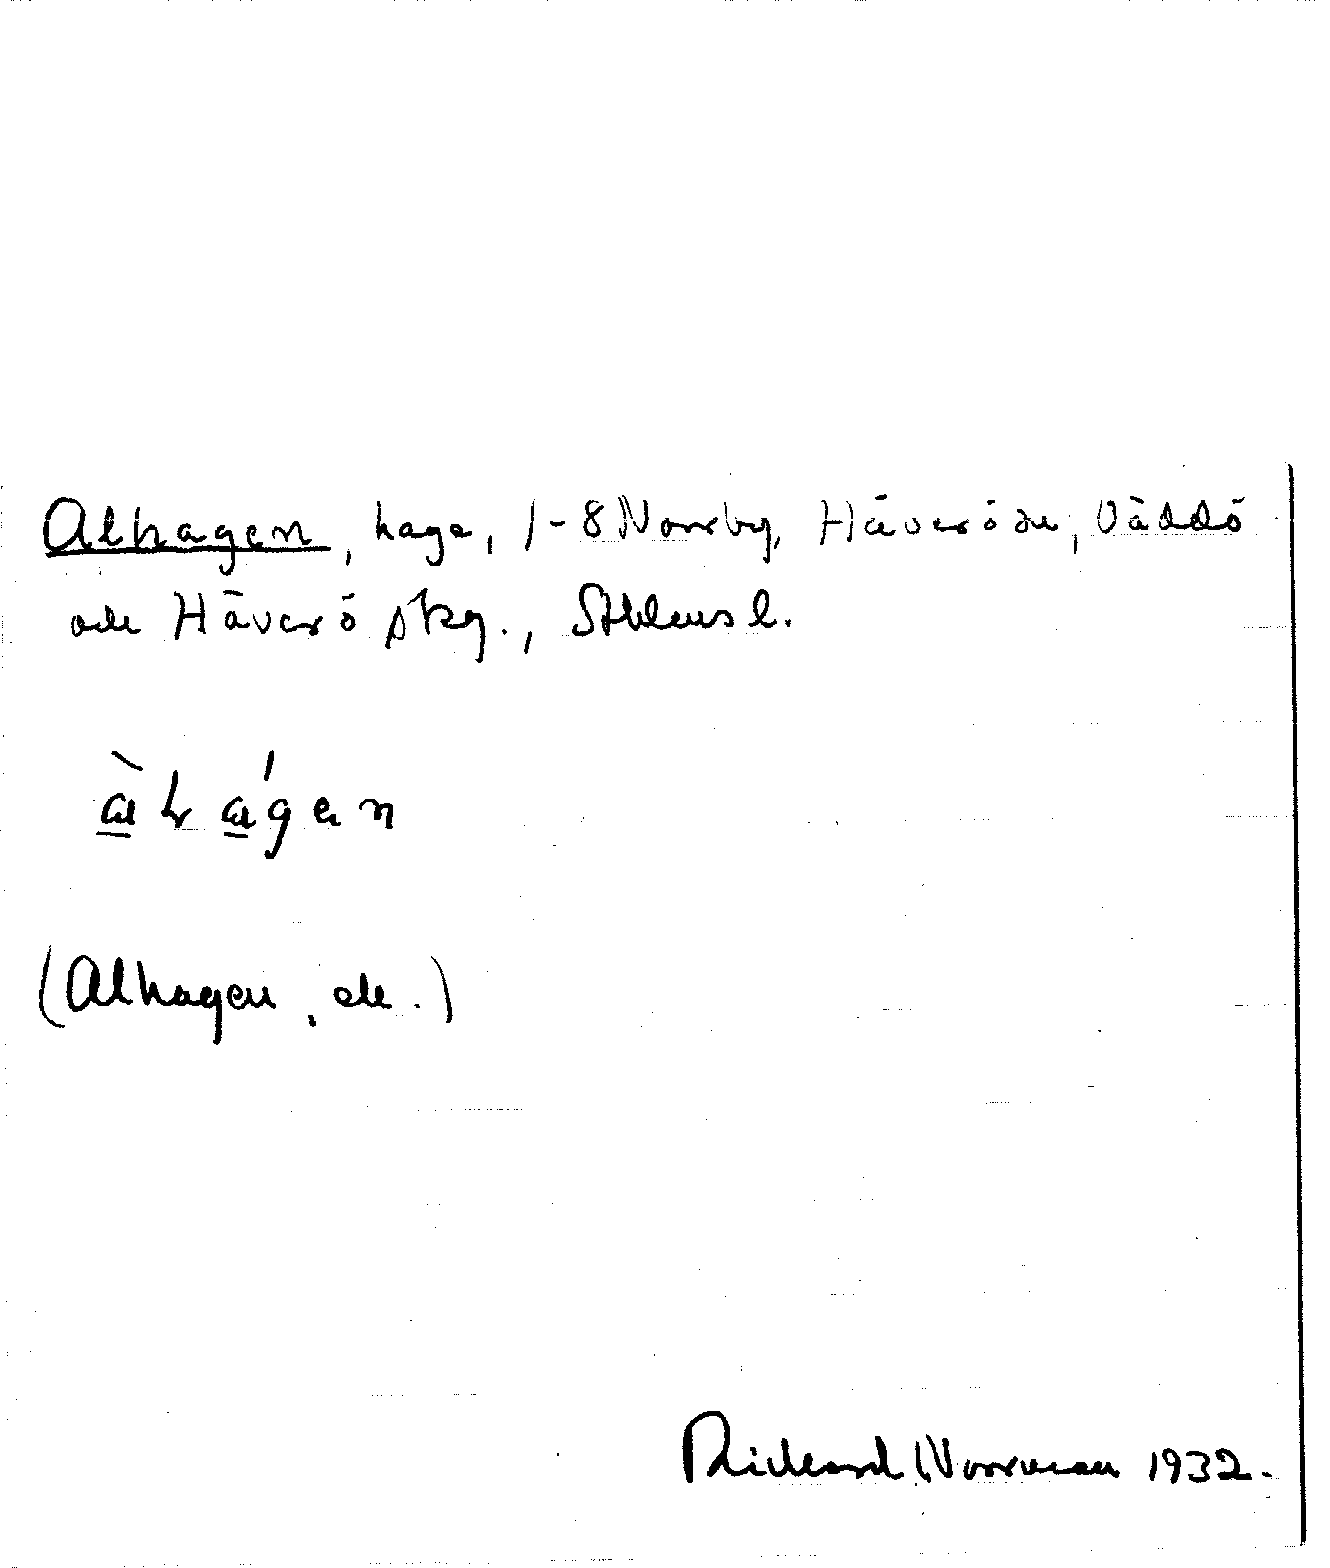 Alhagen, hage, 1-8 Norrby, Häverö sn, Väddö
och Häverö skg., Sthlms l.
(Alhagen, ek.)
Rickard Norrman 1932.